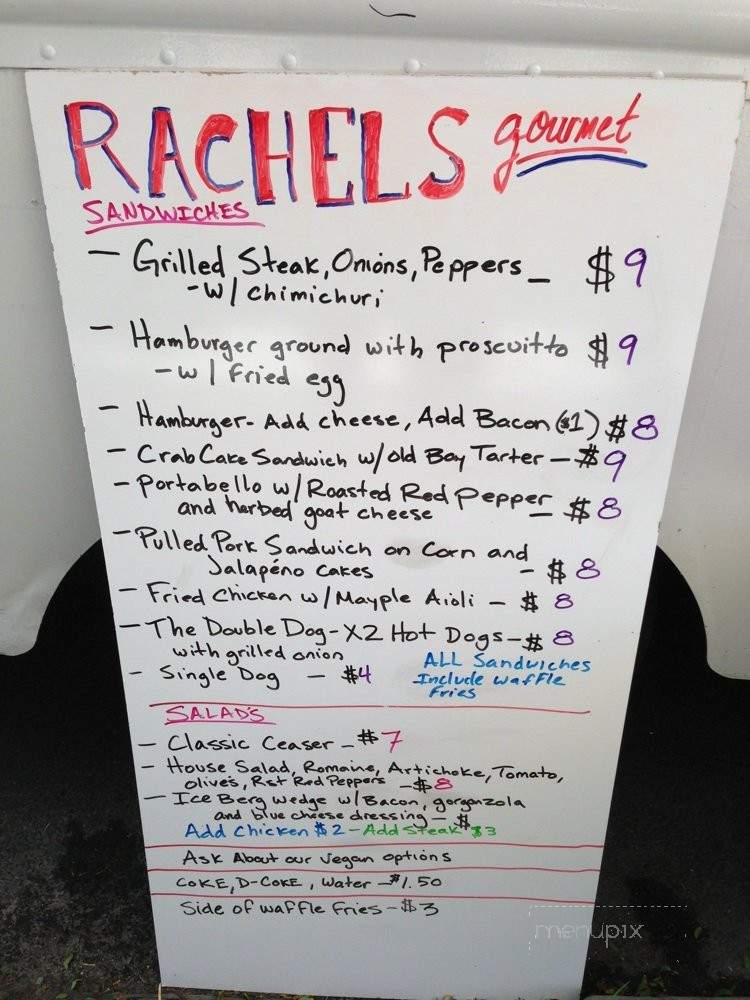 RACHELS gourmet
SANDWICHES
- Grilled Steak, Onions, Peppers - $9
- w/ chimichuri
- Hamburger ground with proscuitto $9
- w/ fried egg
- Hamburger - Add cheese, Add Bacon ($1) $8
- Crab Cake Sandwich w/ Old Bay Tarter - $9
- Portabello w/ Roasted Red Pepper
and herbed goat cheese - $8
- Pulled Pork Sandwich on Corn and
Jalapéno cakes - $8
- Fried Chicken w/ Mayple Aioli - $8
- The Double Dog - X2 Hot Dogs - $8
with grilled onion
- Single Dog - $4
ALL Sandwiches
Include waffle
fries
SALAD'S
- Classic Ceaser - $7
- House Salad, Romaine, Artichoke, Tomato,
olives, Rst Red Peppers - $8
- Ice Berg wedge w/ Bacon, gorgonzola
and blue cheese dressing - $
Add Chicken $2 - Add Steak $3
Ask About our vegan options
COKE, D-COKE, Water - $1.50
Side of waffle fries - $3
menupix